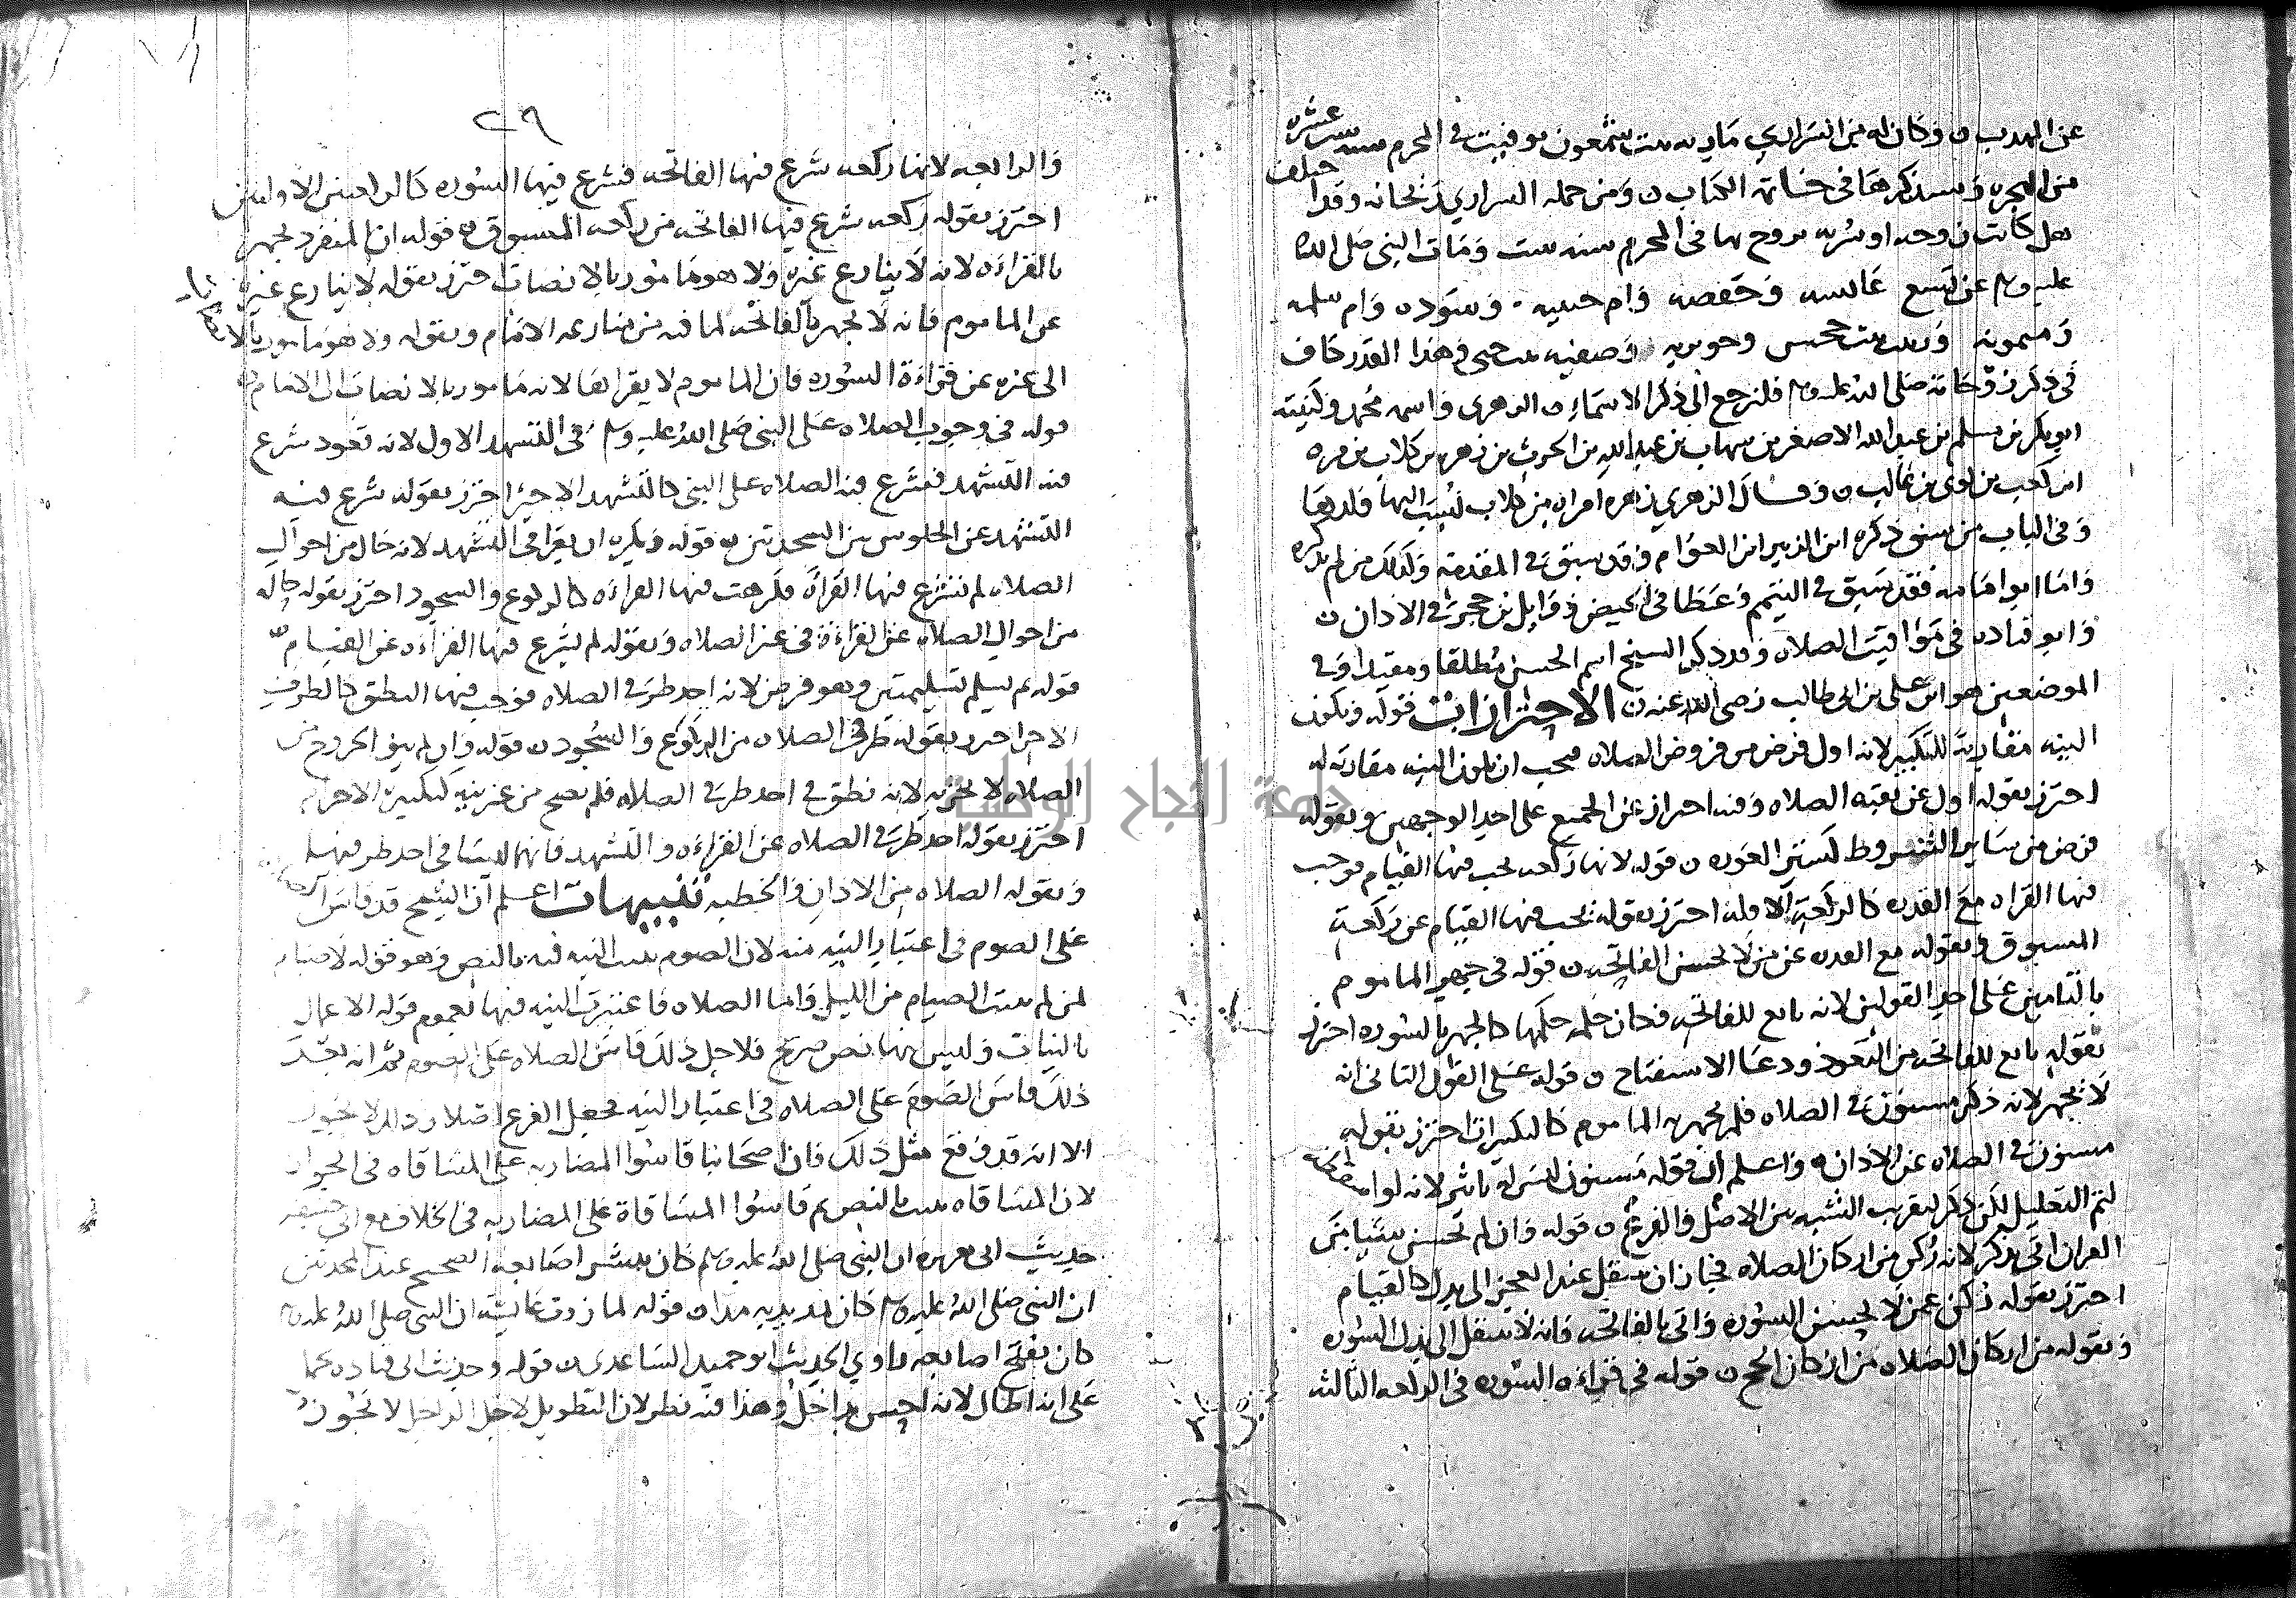 عن المهدب وكان له من السراري مارية بنت شمعون توفيت في المحرم سنة ست عشره
من الهجره وسنذكرها في خاتمة الكتاب ومن جمله السراري ريحانه وقد اختلف
هل كانت زوجه او سريه تزوج بها في المحرم سنه ست ومات النبي صلى الله
عليه وسلم عن تسع عائشه وحفصه وام حبيبه وسوده وام سلمه
وميمونه وزينب بنت جحش وجويريه وصفيه بنت حيي وهذا القدر كاف
في ذكر زوجاته صلى الله عليه وسلم فلنرجع الى ذكر الاسماء الزهري واسمه محمد وكنيته
ابو بكر بن مسلم بن عبد الله الاصغر بن شهاب بن عبد الله بن الحرث بن زهره بن كلاب بن مره
ابن كعب بن لوي بن غالب وقال الزهري زهره امراه من كلاب نسب اليها ولدها
وفي الباب من سبق ذكره ابن الزبير ابن العوام وقد سبق في المقدمه وكذلك من لم نذكره
واما ابو امامه فقد سبق في التيمم وعطا في الحيض ووايل بن حجر في الاذان
وابو قتاده في مواقيت الصلاه وقد ذكر الشيخ اسم الحسن مطلقا ومقيدا وفي
الموضعين هو ابن علي بن ابي طالب رضي الله عنه الاحترازات قوله وتكون
النيه مقارنة للتكبير لانه اول فرض من فروض الصلاه فيجب ان تكون النيه مقارنه له
احترز بقوله اول عن بقيه الصلاه وفيه احتراز عن الجميع على احد الوجهين وبقوله
فرض من ساير الشروط كستر العوره قوله لانها ركعه يجب فيها القيام فوجب
فيها القراه مع القدره كالركعة الاوله احترز بقوله يجب فيها القيام عن ركعة
المسبوق وبقوله مع القدره عن من لا يحسن الفاتحه قوله في جهر الماموم
بالتامين على احد القولين لانه تابع للفاتحه فكان حكمه حكمها كالجهر بالسوره احترز
بقوله تابع للفاتحه من التعوذ ودعا الاستفتاح قوله على القول الثاني انه
لا يجهر لانه ذكر مسنون في الصلاه فلم يجهر به الماموم كالتكبيرات احترز بقوله
مسنون في الصلاه عن الاذان واعلم ان قوله مسنون ليس له تاثير لانه لو اسقطه
لتم التعليل لكن ذكر لتقريب الشبه من الاصل والفرع قوله وان لم يحسن شيئا من
القران اتى بذكر لانه ركن من اركان الصلاه فجاز ان ينتقل عند العجز الى بدل كالقيام
احترز بقوله ركن عمن لا يحسن السوره واتى بالفاتحه فانه لا ينتقل الى بدل السوره
وبقوله من اركان الصلاه من اركان الحج قوله في قراءة السوره في الركعه الثالثه
٢٩
والرابعه لانها ركعه شرع فيها الفاتحه فشرع فيها السوره كالركعتين الاوليين
احترز بقوله ركعه شرع فيها الفاتحه من ركعه المسبوق قوله ان المنفرد يجهر
بالقراءه لانه لا ينازع غيره ولا هو مامور بالانصات احترز بقوله لا ينازع غيره
عن الماموم فانه لا يجهر بالفاتحه لما فيه من منازعه الامام وبقوله ولا هو مامور بالانصات
الى غيره عن قراءة السوره فان الماموم لا يقراها لانه مامور بالانصات الى الامام
قوله في وجوب الصلاه على النبي صلى الله عليه وسلم في التشهد الاول لانه قعود شرع
فيه التشهد فشرع فيه الصلاه على النبي كالتشهد الاخير احترز بقوله شرع فيه
التشهد عن الجلوس بين السجدتين قوله ويكره ان يقرا في التشهد لانه حال من احوال
الصلاه لم تشرع فيها القراة فكرهت فيها القراءه كالركوع والسجود احترز بقوله حاله
من احوال الصلاه عن القراءة في غير الصلاه وبقوله لم يشرع فيها القراءه عن القيام
قوله ثم يسلم تسليمتين وهو فرض لانه احد طرفي الصلاه فوجب فيها النطق كالطرف
الاخر احترز بقوله طرفي الصلاه من الركوع والسجود قوله وان لم ينو الخروج من
الصلاه لا يجزيه لانه نطق في احد طرفي الصلاه فلم يصح من غير نيه كتكبيرة الاحرام
احترز بقوله احد طرفي الصلاه عن القراءه والتشهد فانهما ليسا في احد طرفيها
وبقوله الصلاه من الاذان والخطبه تنبيهات اعلم ان الشيخ قد قاس الصلاه
على الصوم في اعتبار النيه منه لان الصوم ثبتت النيه فيه بالنص وهو قوله لا صيام
لمن لم يبيت الصيام من الليل واما الصلاه فاعتبرت النيه فيها بعموم قوله الاعمال
بالنيات وليس فيها نص صريح فلاجل ذلك قاس الصلاه على الصوم ثم انه بعد
ذلك قاس الصوم على الصلاه في اعتبار النيه فجعل الفرع اصلا وذلك لا يجوز
الا انه قد وقع مثل ذلك فان اصحابنا قاسوا المضاربه على المساقاه في الجواز
لان المساقاه ثبتت بالنص ثم قاسوا المساقاة على المضاربه في الخلاف مع ابي حنيفه
حديث ابي هريره ان النبي صلى الله عليه وسلم كان ينشر اصابعه الصحيح عند المحدثين
ان النبي صلى الله عليه وسلم كان يمد يديه مدا قوله لما روت عائشه ان النبي صلى الله عليه وسلم
كان يفتح اصابعه راوي الحديث ابو حميد الساعدي قوله وحديث ابي قتاده يحمل
على انه اطال لانه احس بداخل وهذا فيه نظر لان التطويل لاجل الداخل لا يجوز
جامعة النجاح الوطنية